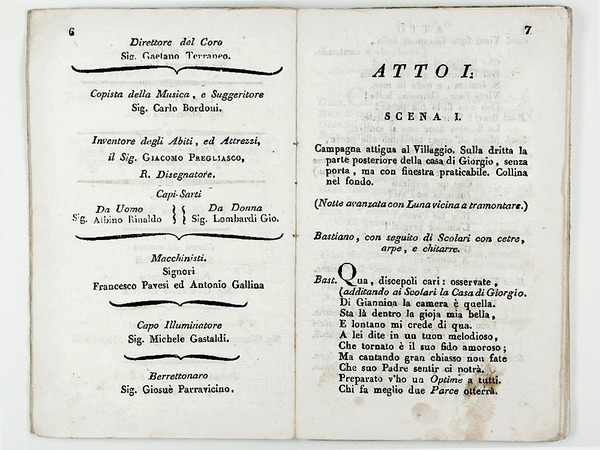 6
Direttore del Coro
Sig. Gaetano Terraneo.
Copista della Musica, e Suggeritore
Sig. Carlo Bordoni.
Inventore degli Abiti, ed Attrezzi,
il Sig. GIACOMO PREGLIASCO,
R. Disegnatore.
Capi-Sarti
Da Uomo } { Da Donna
Sig. Albino Rinaldo } { Sig. Lombardi Gio.
Macchinisti.
Signori
Francesco Pavesi ed Antonio Gallina
Capo Illuminatore
Sig. Michele Gastaldi.
Berrettonaro
Sig. Giosuè Parravicino.
7
ATTO I.
SCENA I.
Campagna attigua al Villaggio. Sulla dritta la
parte posteriore della casa di Giorgio, senza
porta, ma con finestra praticabile. Collina
nel fondo.
(Notte avanzata con Luna vicina a tramontare.)
Bastiano, con seguito di Scolari con cetre,
arpe, e chitarre.
Bast. Qua, discepoli cari: osservate,
(additando ai Scolari la Casa di Giorgio.
Di Giannina la camera è quella.
Sta là dentro la gioja mia bella,
E lontano mi crede di qua.
A lei dite in un tuon melodioso,
Che tornato è il suo fido amoroso;
Ma cantando gran chiasso non fate
Che suo Padre sentir ci potrà.
Preparato v'ho un Optime a tutti.
Chi fa meglio due Parce otterrà.